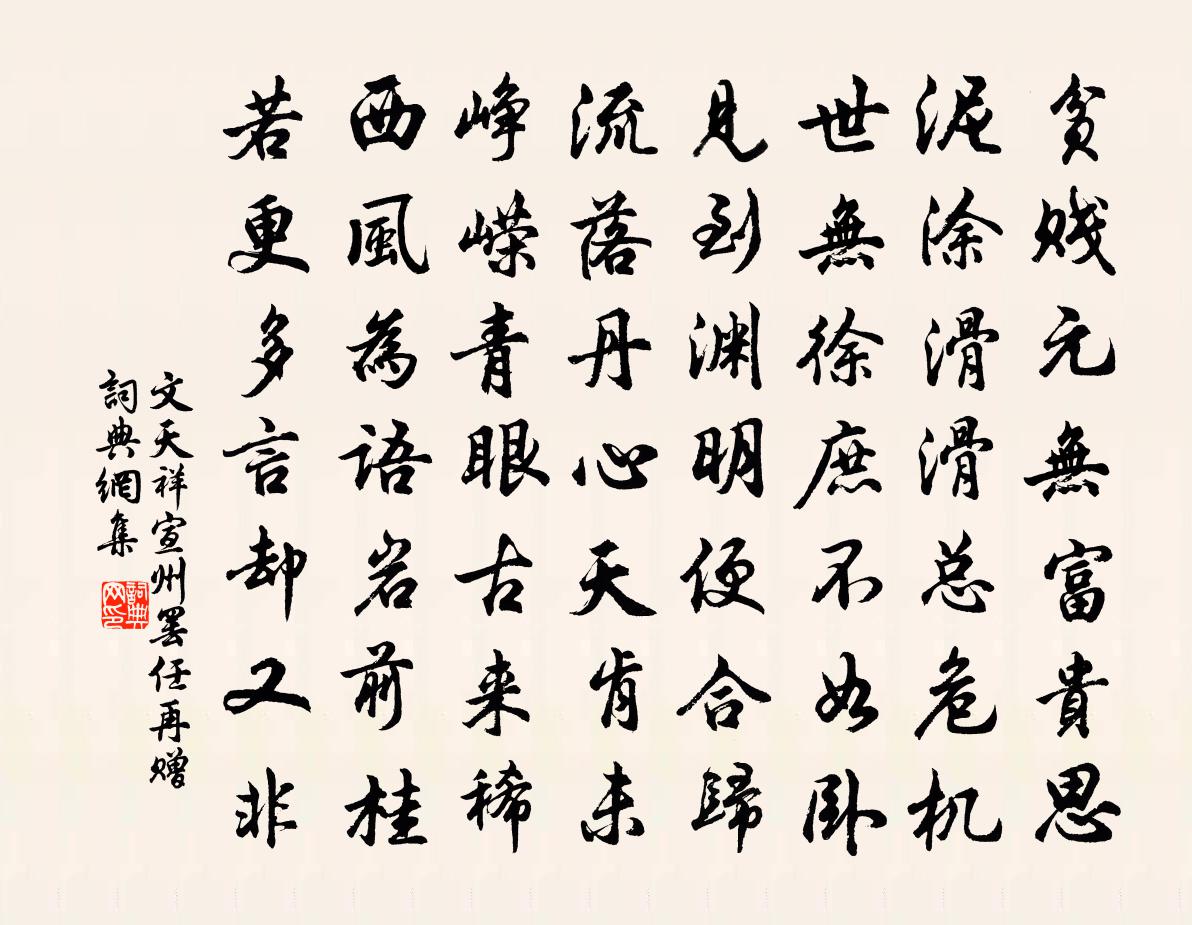 贫贱元無富貴思
泥涂滑滑总危机
世無徐庶不如卧
見到渊明便合歸
流落丹心天肯未
峥嵘青眼古来稀
西風為語岩前桂
若更多言却又非
文天祥宣州罢任再赠
詞典網集
詞典网印